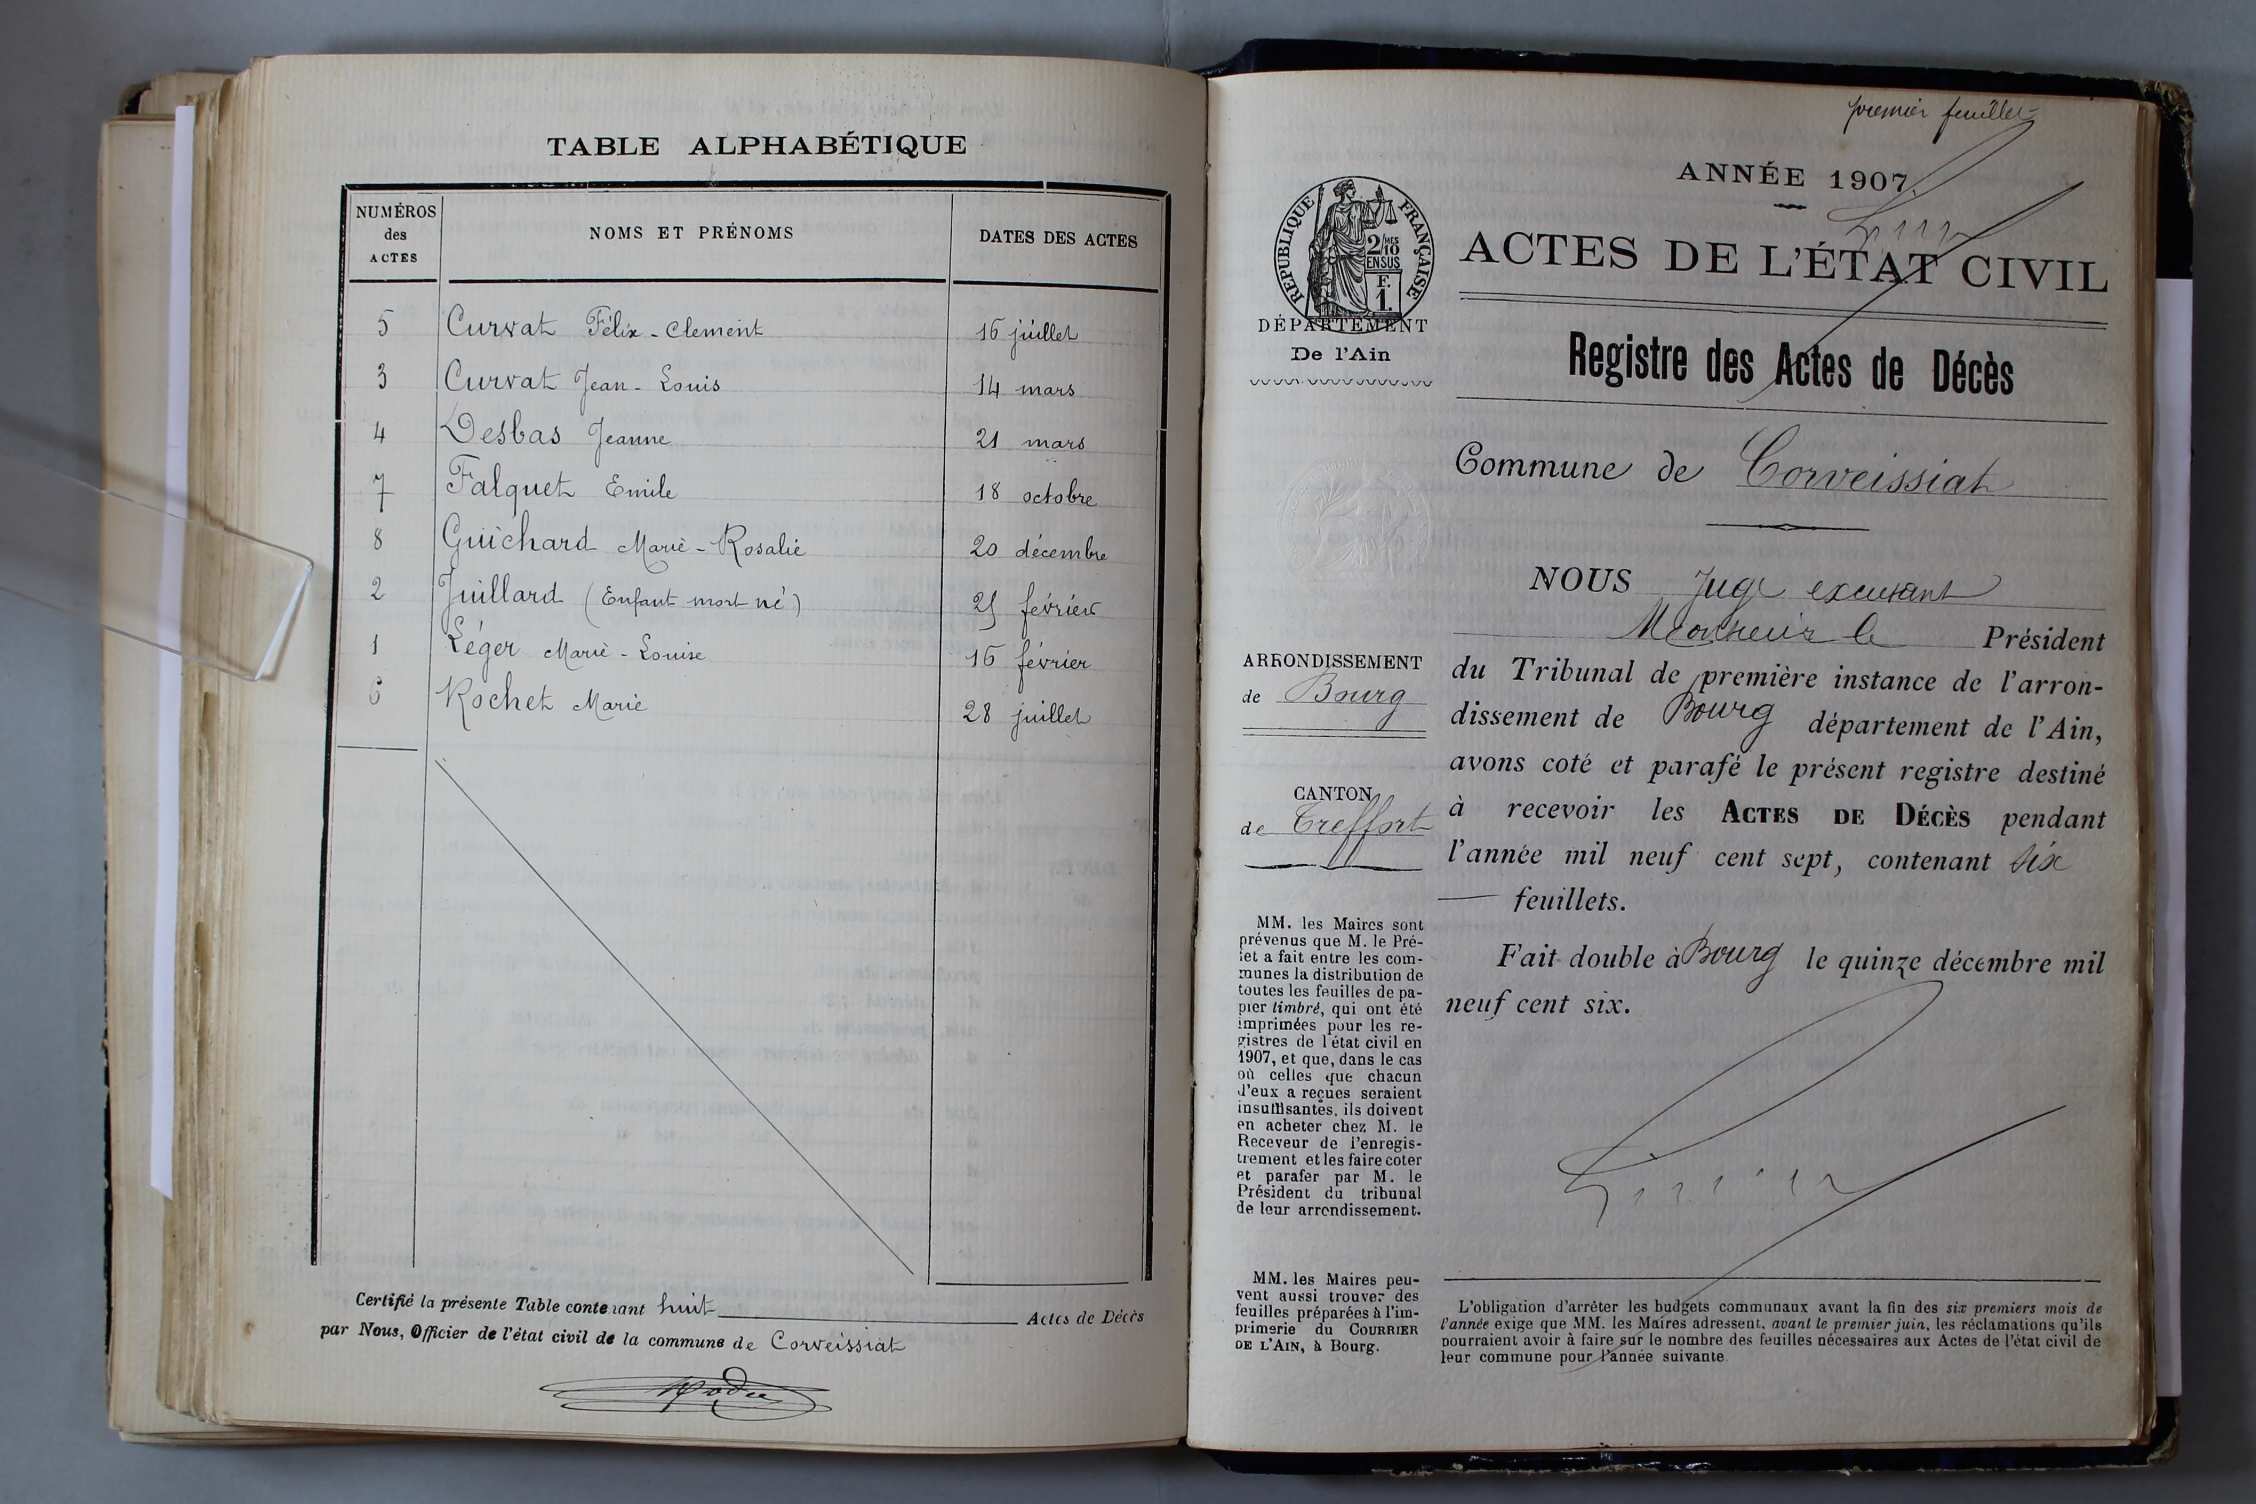 TABLE ALPHABÉTIQUE
NUMÉROS des ACTES NOMS ET PRÉNOMS DATES DES ACTES
5 Curvat Félix - Clement 16 juillet
3 Curvat Jean - Louis 14 mars
4 Desbas Jeanne 21 mars
7 Falquet Emile 18 octobre
8 Guichard Marie - Rosalie 20 décembre
2 Juillard (Enfant mort né) février
1 Léger Marie - Louise 16 février
6 Rochet Marie 28 juillet
Certifié la présente Table contenant huit Actes de Décès
par Nous, Officier de l'état civil de la commune de Corveissiat
premier feuillet
ANNÉE 1907
ACTES DE L'ÉTAT CIVIL
RÉPUBLIQUE FRANÇAISE
2/10MES
EN SUS
F.
1.
DÉPARTEMENT
De l'Ain
Registre des Actes de Décès
Commune de Corveissiat
NOUS Juge excusant
Monsieur le Président
du Tribunal de première instance de l'arron-
dissement de Bourg département de l'Ain,
avons coté et parafé le présent registre destiné
à recevoir les ACTES DE DÉCÈS pendant
l'année mil neuf cent sept, contenant six
feuillets.
Fait double à Bourg le quinze décembre mil
neuf cent six.
ARRONDISSEMENT
de Bourg
CANTON
de Treffort
MM. les Maires sont
prévenus que M. le Pré-
fet a fait entre les com-
munes la distribution de
toutes les feuilles de pa-
pier timbré, qui ont été
imprimées pour les re-
gistres de l'état civil en
1907, et que, dans le cas
où celles que chacun
d'eux a reçues seraient
insuffisantes, ils doivent
en acheter chez M. le
Receveur de l'enregis-
trement et les faire coter
et parafer par M. le
Président du tribunal
de leur arrondissement.
MM. les Maires peu-
vent aussi trouver des
feuilles préparées à l'im-
primerie du COURRIER
DE L'AIN, à Bourg.
L'obligation d'arrêter les budgets communaux avant la fin des six premiers mois de
l'année exige que MM. les Maires adressent, avant le premier juin, les réclamations qu'ils
pourraient avoir à faire sur le nombre des feuilles nécessaires aux Actes de l'état civil de
leur commune pour l'année suivante.